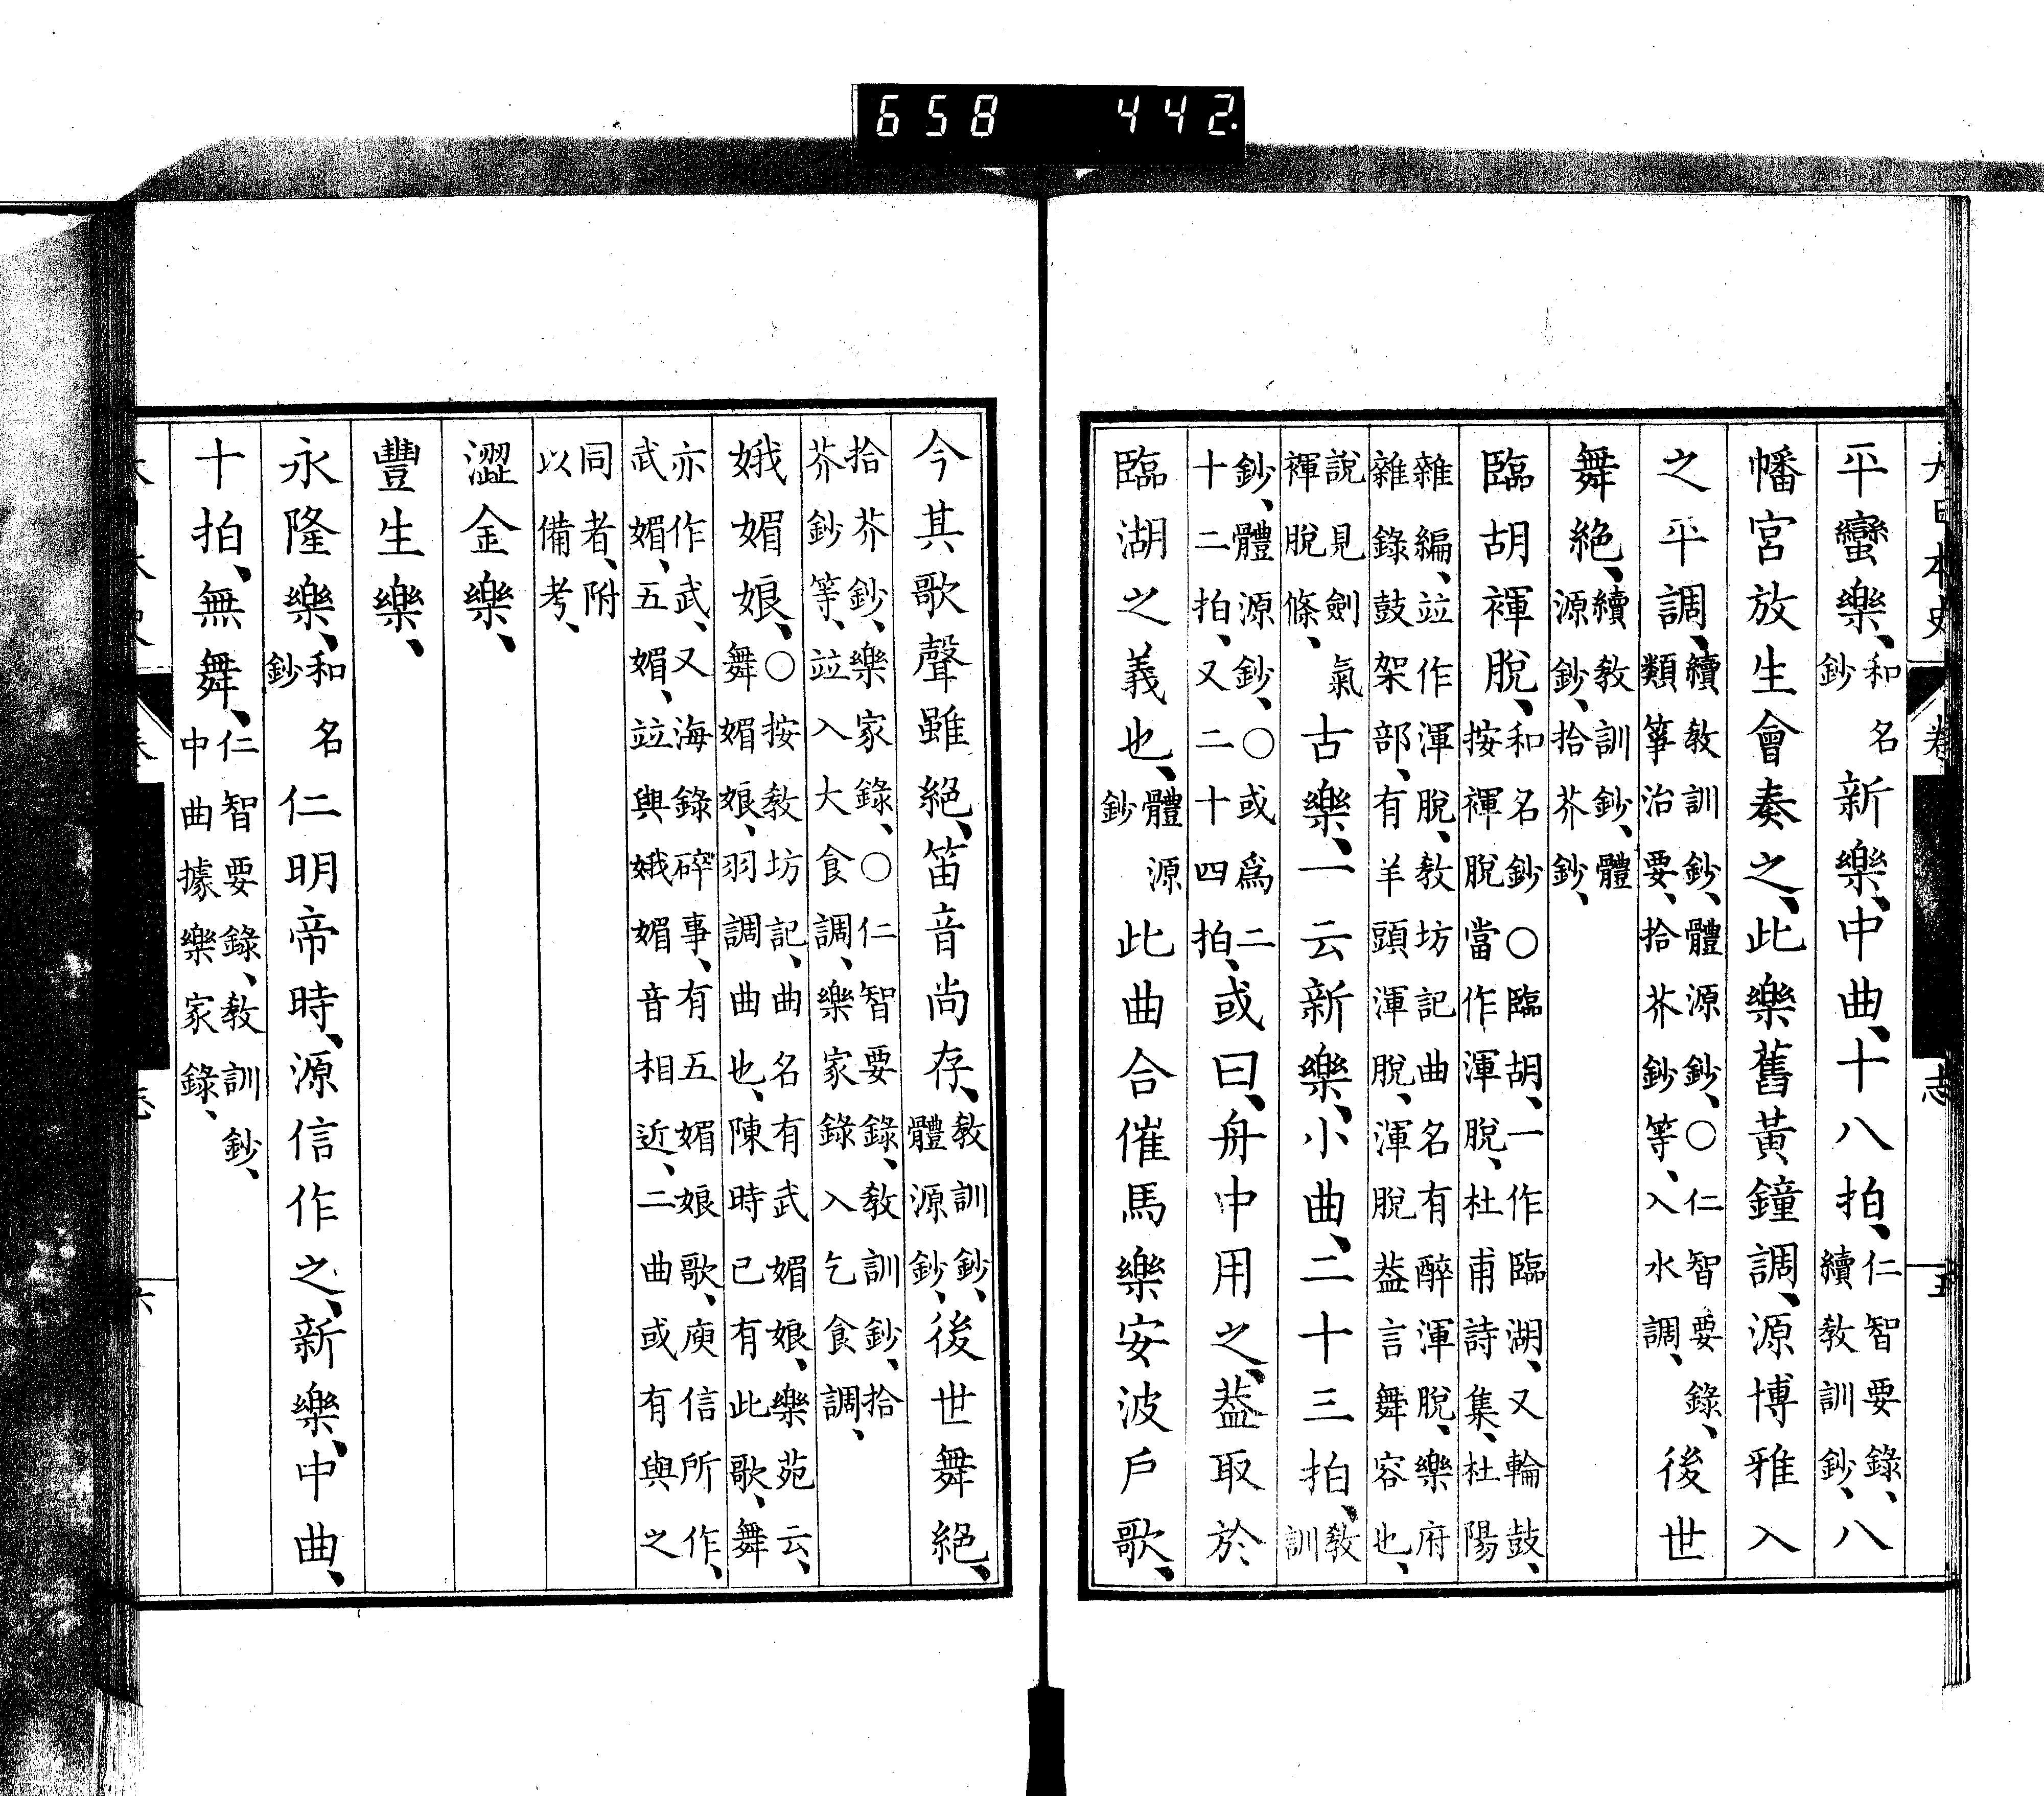 658 442.
大日本史 卷 志 五
平蠻樂、和名鈔新樂、中曲、十八拍、仁智要錄、續教訓鈔、八
幡宮放生會奏之、此樂舊黃鐘調、源博雅入
之平調、續教訓鈔、體源鈔、○仁智要錄、類箏治要、拾芥鈔等、入水調、後世
舞絕、續教訓鈔、體源鈔、拾芥鈔、
臨胡褌脫、和名鈔○臨胡、一作臨湖、又輪鼓、按褌脫當作渾脫、杜甫詩集、杜陽
雜編、竝作渾脫、教坊記曲名有醉渾脫、樂府雜錄鼓架部、有羊頭渾脫、渾脫蓋言舞容也、
說見劍氣褌脫條、古樂、一云新樂、小曲、二十三拍、教訓
鈔、體源鈔、○或爲二十二拍、又二十四拍、或曰、舟中用之、蓋取於
臨湖之義也、體源鈔此曲合催馬樂安波戶歌、
今其歌聲雖絕、笛音尚存、教訓鈔、體源鈔、後世舞絕、
拾芥鈔、樂家錄、○仁智要錄、教訓鈔、拾芥鈔等、竝入大食調、樂家錄入乞食調、
娥媚娘、○按教坊記、曲名有武媚娘、樂苑云、舞媚娘、羽調曲也、陳時已有此歌、舞
亦作武、又海錄碎事、有五媚娘歌、庾信所作、武媚、五媚、竝與娥媚音相近、二曲或有與之
同者、附以備考、
澀金樂、
豐生樂、
永隆樂、和名鈔仁明帝時、源信作之、新樂、中曲、
十拍、無舞、仁智要錄、教訓鈔、中曲據樂家錄、